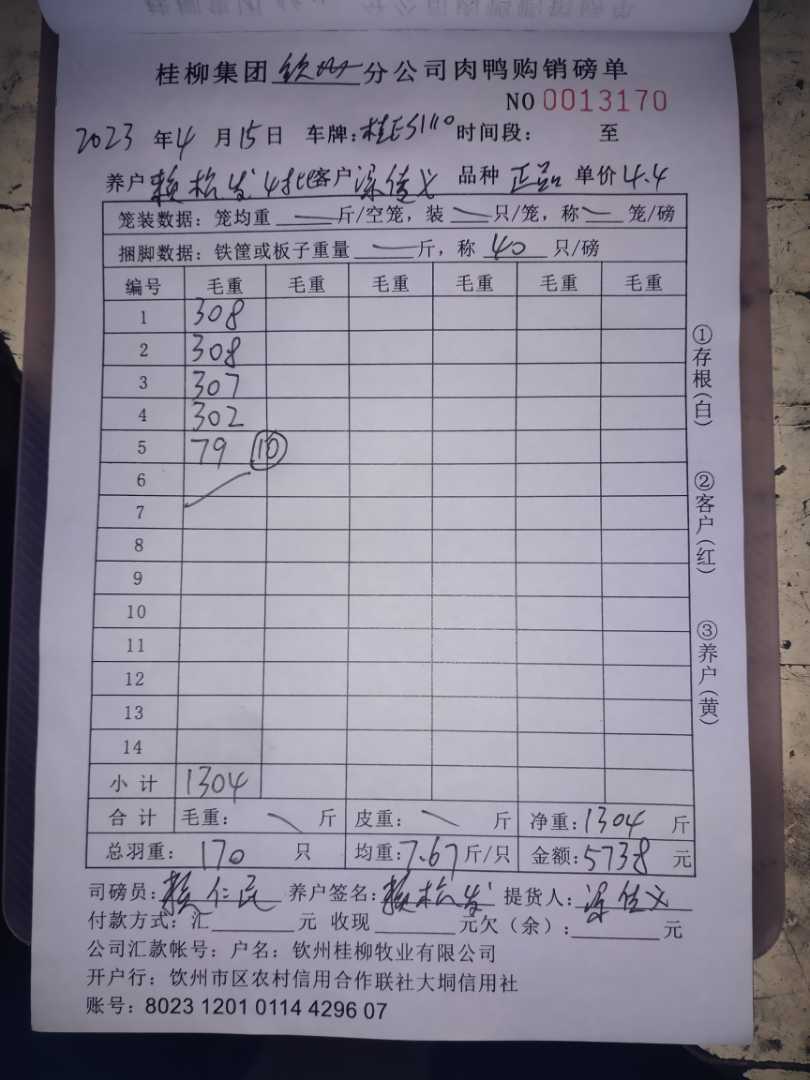 桂柳集团 钦州 分公司肉鸭购销磅单
NO 0013170
2023 年 4 月 15 日 车牌: 桂ES1110 时间段: 至
养户 赖松发 4批 客户 涂佳义 品种 正品 单价 4.4
笼装数据: 笼均重 — 斤/空笼, 装 — 只/笼, 称 — 笼/磅
捆脚数据: 铁筐或板子重量 — 斤, 称 40 只/磅
编号 毛重 毛重 毛重 毛重 毛重 毛重
1 308
2 308
3 307
4 302
5 79 10
6
7
8
9
10
11
12
13
14
小计 1304
合计 毛重: \ 斤 皮重: \ 斤 净重: 1304 斤
总羽重: 170 只 均重: 7.67 斤/只 金额: 5738 元
司磅员: 赖仁民 养户签名: 赖松发 提货人: 涂佳义
付款方式: 汇 元 收现 元 欠(余): 元
公司汇款帐号: 户名: 钦州桂柳牧业有限公司
开户行: 钦州市区农村信用合作联社大垌信用社
账号: 8023 1201 0114 4296 07
①存根(白)
②客户(红)
③养户(黄)